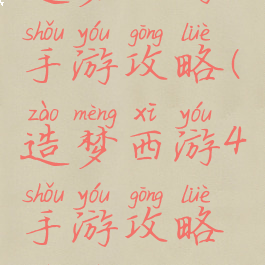 shǒu yóu gōng lüè
手游攻略(
zào mèng xī yóu
造梦西游4
shǒu yóu gōng lüè
手游攻略